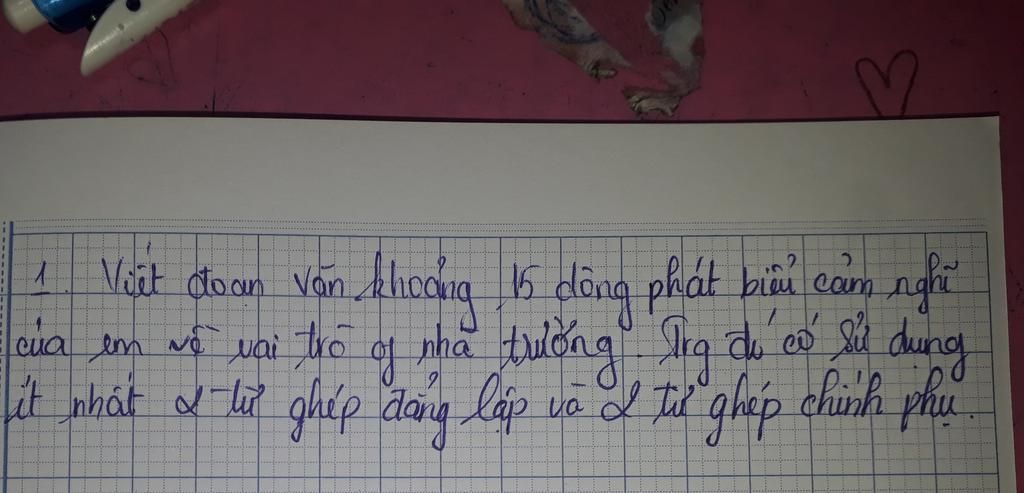 1. Viết đoạn văn khoảng 15 dòng phát biểu cảm nghĩ
của em về vai trò of nhà trường. Trg đó có sử dụng
ít nhất 2 từ ghép đẳng lập và 2 từ ghép chính phụ.